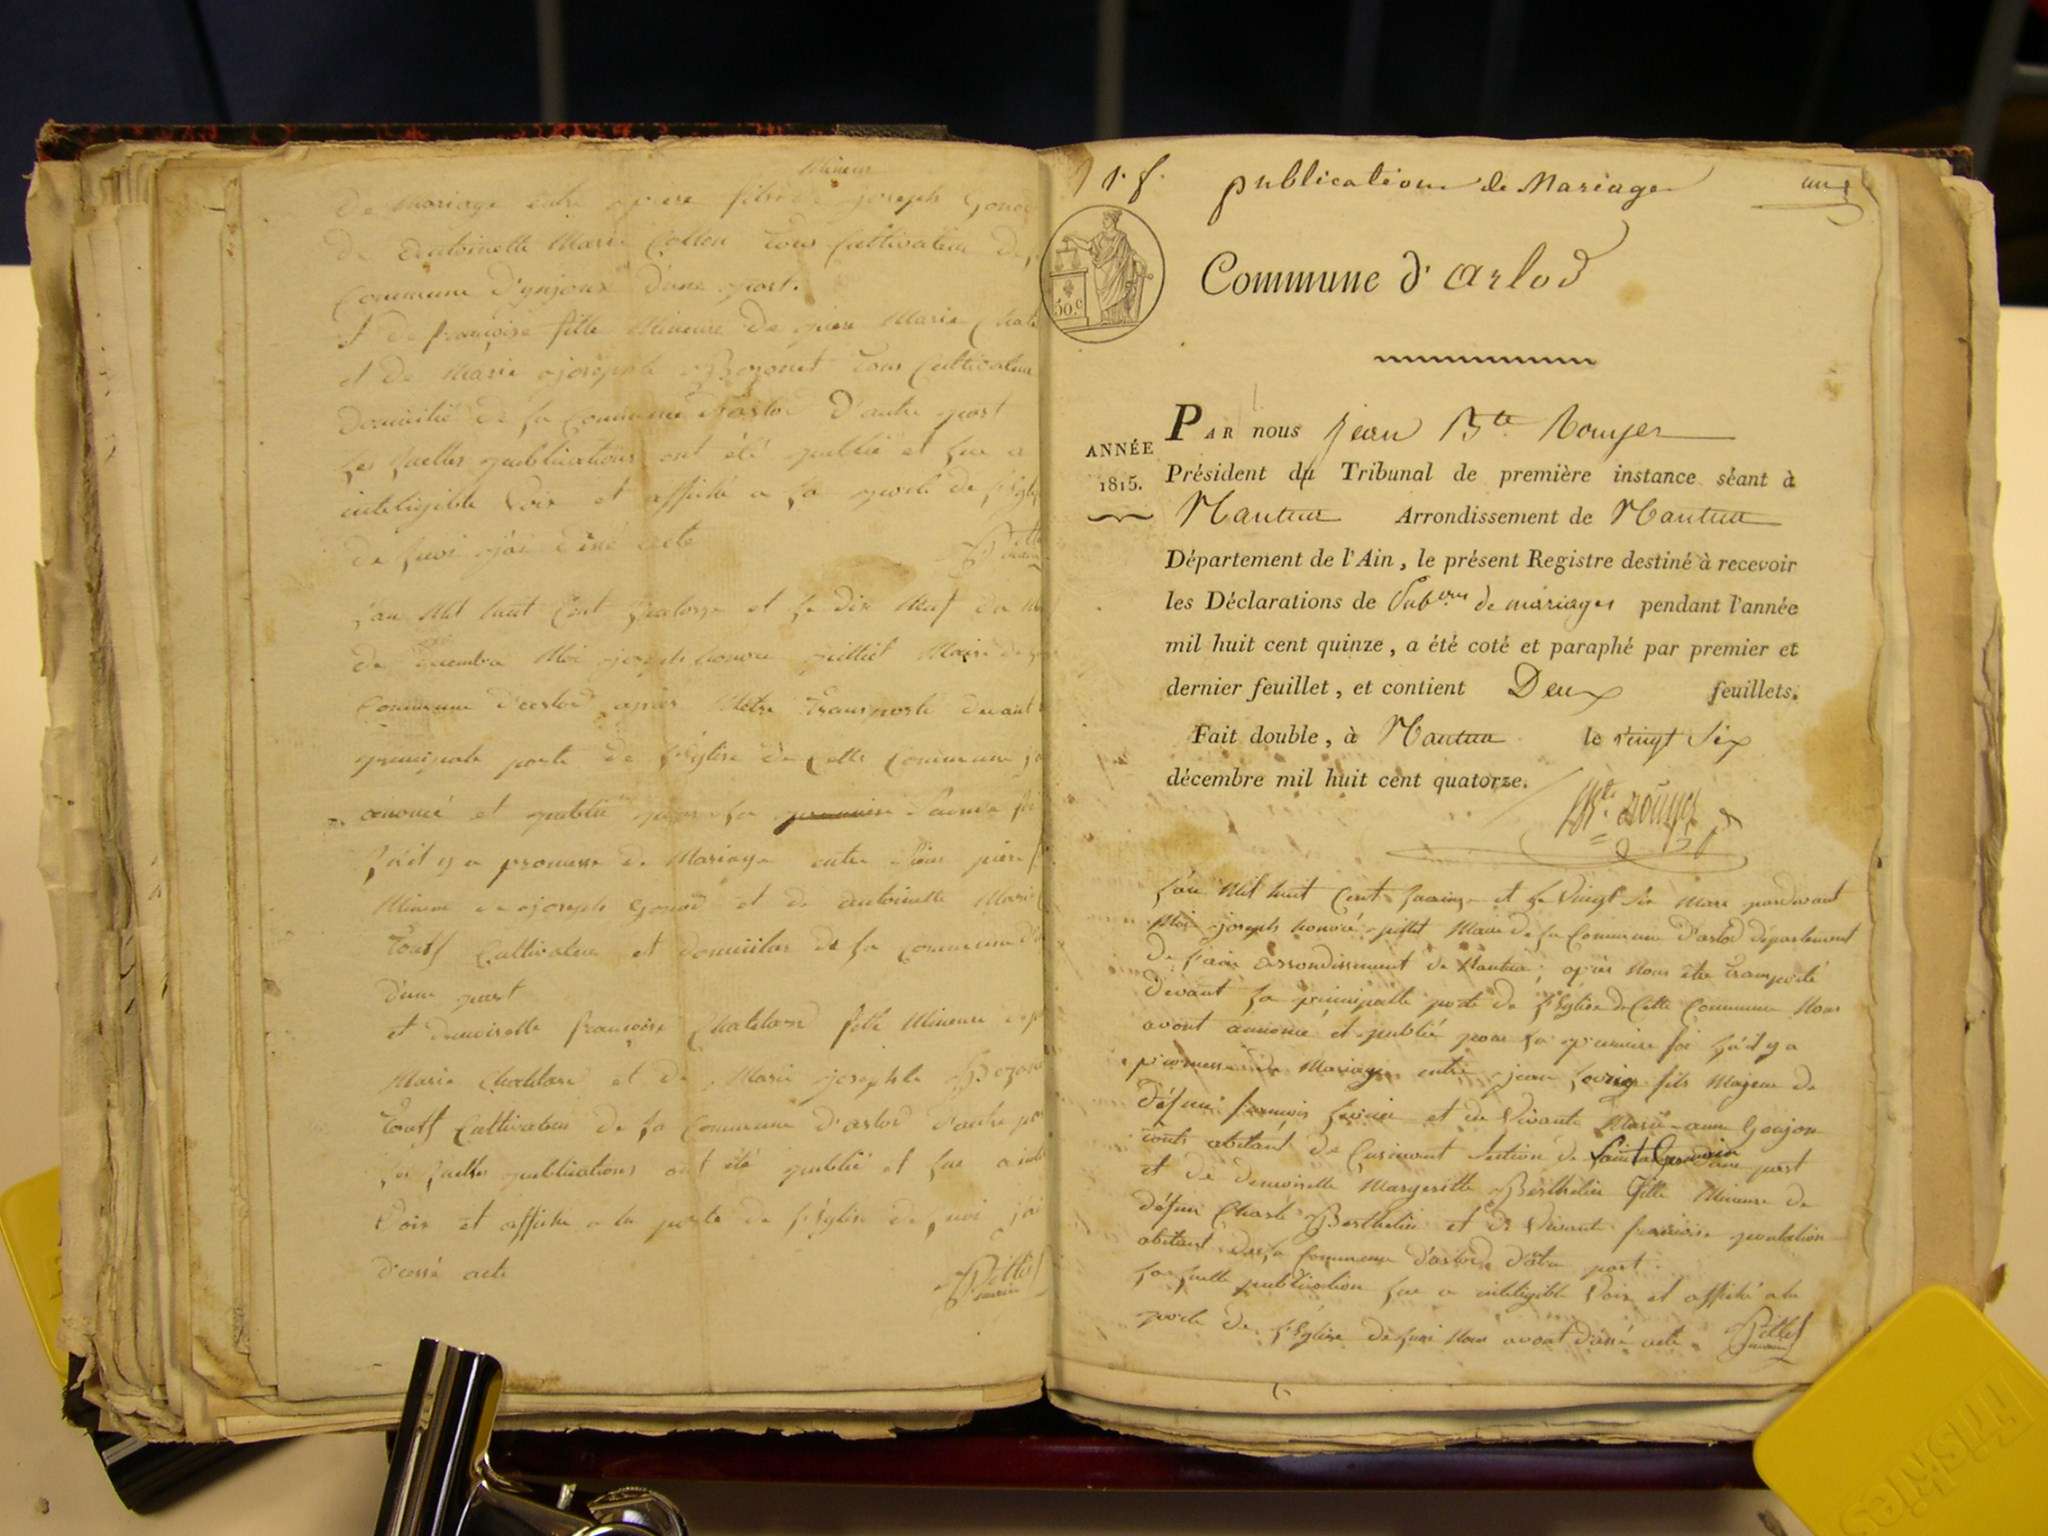 Mineur
de mariage entre piere fils de joseph Gonod
de antoinette Marie Collon tous Cultivateur de
Commune d'ynjoux d'une part.
et de françoise fille Mineure de piere Marie Chate
et de Marie josephte Bozonet tous Cultivateur
domicilié de la Commune d'arlod d'autre part
les quelles publications ont été publié et lue a
inteligible Voix et affiché a la porte de l'Eglise
de quoi j'ai dressé acte
Pillet
maire
l'an Mil huit Cent quatorze et le dix Neuf du
de decembre Moi joseph honoré pillet Maire de
Commune d'arlod apres M'etre transporté devant
principale porte de l'Eglise de Cette Commune
anoncé et publié pour la premiere
qu'il y a promesse de Mariage entre piere
Mineur de joseph Gonod et de antoinette Marie
tous Cultivateur et domicilier de la Commune
d'une part
et demoiselle françoise Chatelard fille Mineure
Marie Chatelard et de Marie josephte Bozon
tous Cultivateur de la Commune d'arlod d'autre
les quelles publications ont été publié et lue a
Voix et affiché a la porte de l'Eglise de quoi j'ai
dressé acte
Pillet
maire
1. f. publication de Mariage un
Commune d'arlod
50.c
ANNÉE
1815.
PAR nous jean Bte Rouyer
Président du Tribunal de première instance séant à
Nantua Arrondissement de Nantua
Département de l'Ain, le présent Registre destiné à recevoir
les Déclarations de Pub.ons de mariages pendant l'année
mil huit cent quinze, a été coté et paraphé par premier et
dernier feuillet, et contient Deux feuillets.
Fait double, à Nantua le vingt Six
décembre mil huit cent quatorze.
Bte Rouyer
l'an Mil huit Cent quinze et le Vingt Six Mars pardevant
Moi joseph honoré pillet Maire de la Commune d'arlod département
de l'ain arrondissement de Nantua; après Nous être transporté
devant la principalle porte de l'Eglise de Cette Commune Nous
avont annoncé et publié pour la premiere foi qu'il y a
promesse de Mariage entre jean fils Majeur de
défunt francois et de Vivante Marie-anne Goujon
touts abitant de Section de Saint Germain d'une part
et de demoiselle Margeritte Berthelier fille Mineure de
défunt Charle Berthelier et de Vivante
abitant de la Commune d'arlod d'otre part.
la quelle publication lue a inteligible Voix et affiché a la
porte de l'Eglise de quoi Nous avont dressé acte. Pillet
maire
Friskies